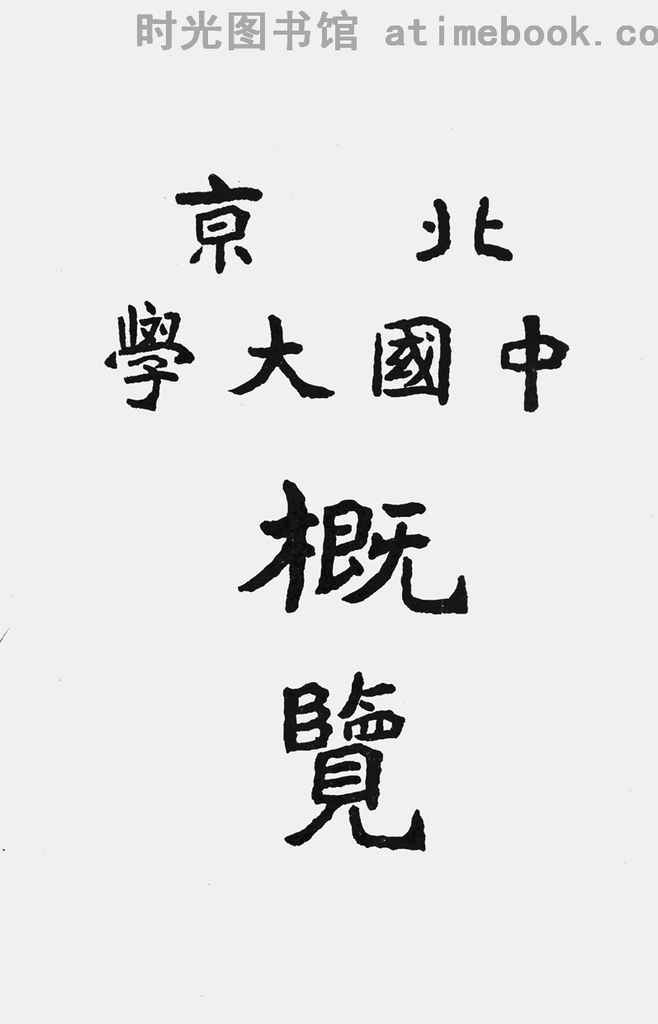 时光图书馆 atimebook.co
北京
中國大學
概
覽